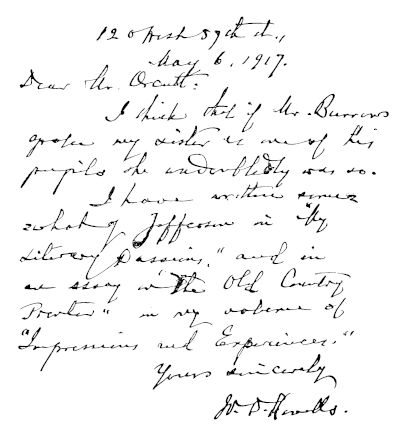 120 West 57th St.,
May 6, 1917.
Dear Mr. Orcutt:
I think that if Mr. Burrows
spoke my sister as one of his
pupils she undoubtedly was so.
I have written some-
what of Jefferson in "My
Literary Passions," and in
an essay in "The Old Country
Printer" in my volume of
"Impressions and Experiences."
Yours sincerely
W. D. Howells.